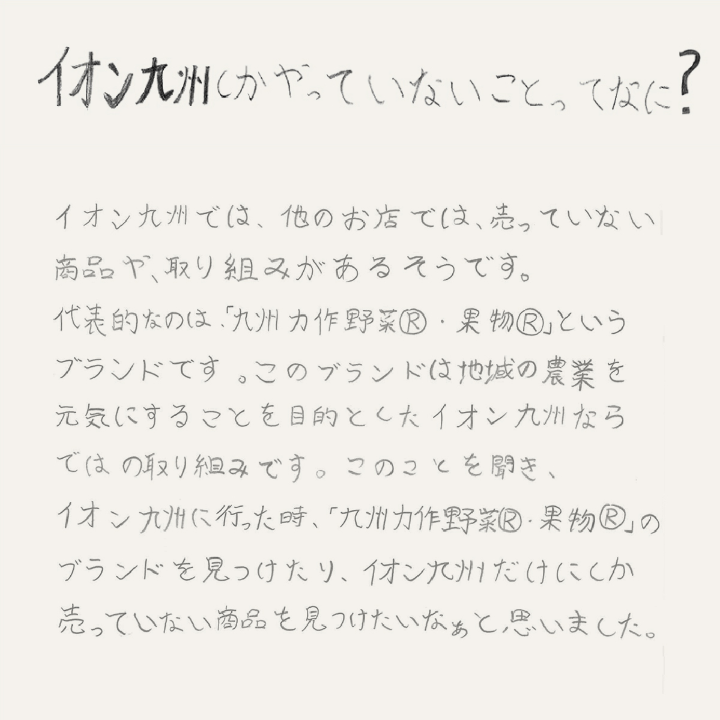 イオン九州しかやっていないことってなに?
イオン九州では、他のお店では、売っていない
商品や、取り組みがあるそうです。
代表的なのは、「九州力作野菜®・果物®」という
ブランドです。このブランドは地域の農業を
元気にすることを目的としたイオン九州なら
ではの取り組みです。このことを聞き、
イオン九州に行った時、「九州力作野菜®・果物®」の
ブランドを見つけたり、イオン九州だけにしか
売っていない商品を見つけたいなぁと、思いました。